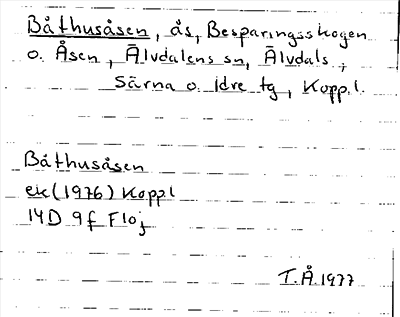 Båthusåsen, ås, Besparingsskogen
o. Åsen, Älvdalens sn, Älvdals,
Särna o. Idre tg, Koppl.
Båthusåsen
ek (1976) Koppl
14D 9f Floj
T.Å. 1977